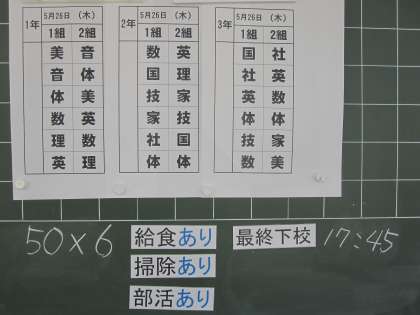 1年 5月26日 (木)
1組 2組
美 音
音 体
体 美
数 英
理 数
英 理
2年 5月26日 (木)
1組 2組
数 英
国 理
技 家
家 技
社 国
体 体
3年 5月26日 (木)
1組 2組
国 社
社 英
英 数
体 体
技 家
数 美
50×6 給食あり 最終下校 17:45
掃除あり
部活あり